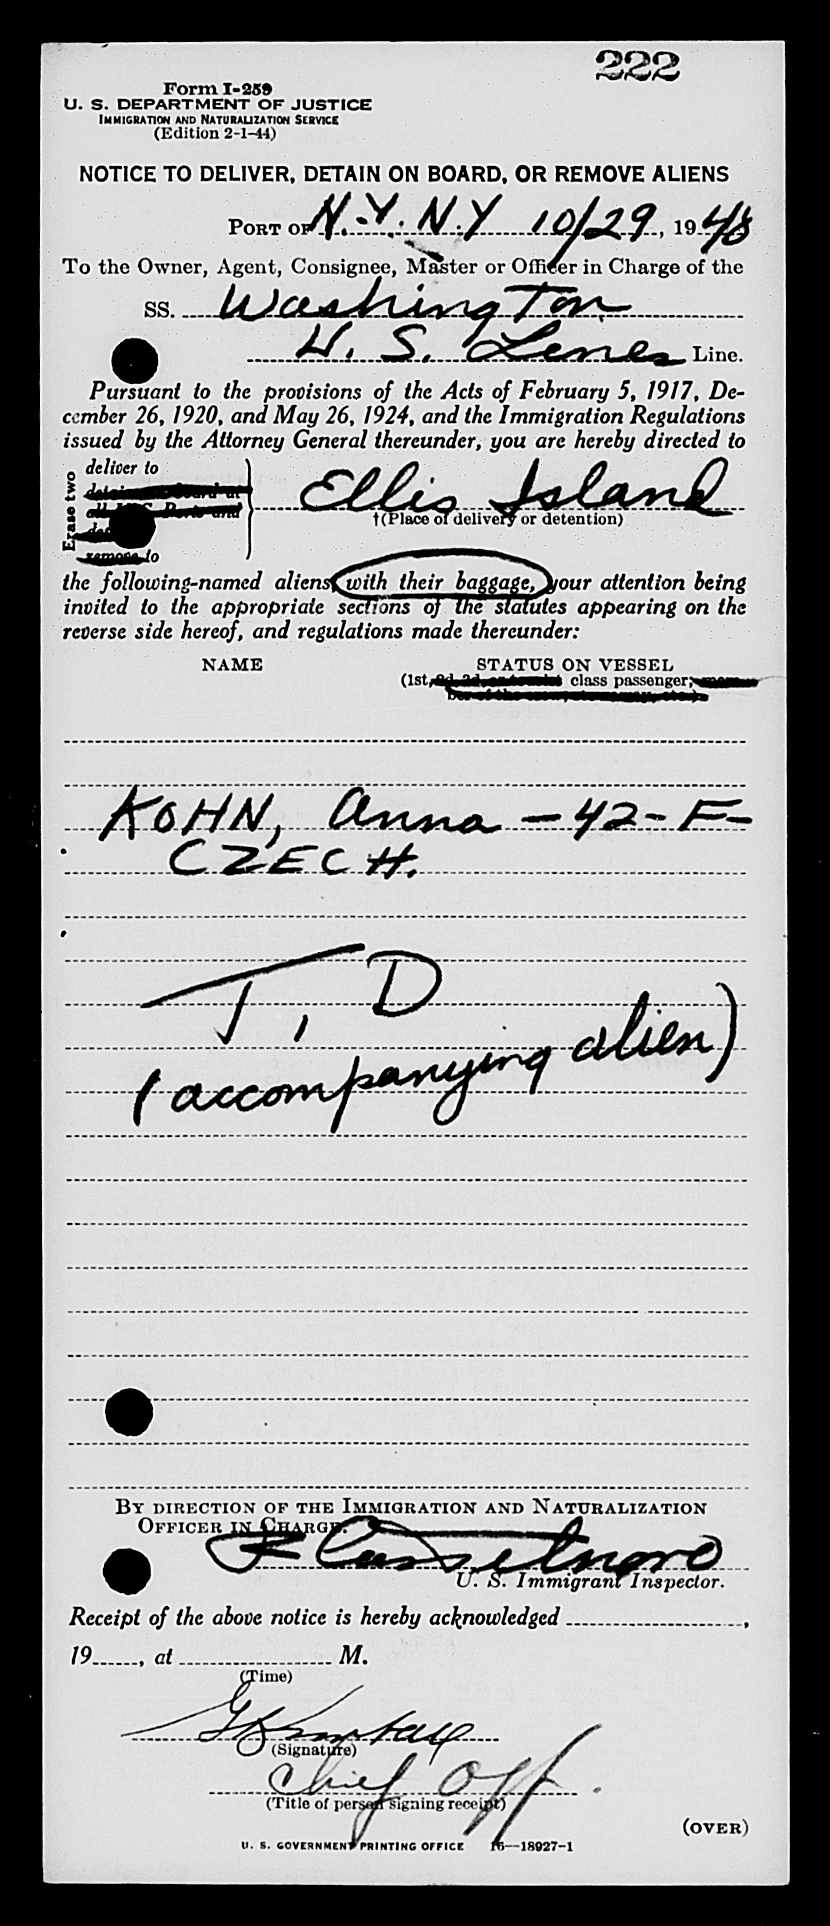 222
Form I-259
U. S. DEPARTMENT OF JUSTICE
IMMIGRATION AND NATURALIZATION SERVICE
(Edition 2-1-44)
NOTICE TO DELIVER, DETAIN ON BOARD, OR REMOVE ALIENS
PORT OF N.Y. N.Y 10/29, 1948
To the Owner, Agent, Consignee, Master or Officer in Charge of the
SS. Washington
U. S. Lines Line.
Pursuant to the provisions of the Acts of February 5, 1917, De-
cember 26, 1920, and May 26, 1924, and the Immigration Regulations
issued by the Attorney General thereunder, you are hereby directed to
Erase two
deliver to
remove to
Ellis Island
†(Place of delivery or detention)
the following-named aliens, with their baggage, your attention being
invited to the appropriate sections of the statutes appearing on the
reverse side hereof, and regulations made thereunder:
NAME STATUS ON VESSEL
(1st, class passenger;
KOHN, Anna - 42 - F -
CZECH.
T, D
(accompanying alien)
BY DIRECTION OF THE IMMIGRATION AND NATURALIZATION
OFFICER IN CHARGE.
U. S. Immigrant Inspector.
Receipt of the above notice is hereby acknowledged ,
19 , at M.
(Time)
(Signature)
Chief Off.
(Title of person signing receipt)
(OVER)
U. S. GOVERNMENT PRINTING OFFICE 16—18927-1